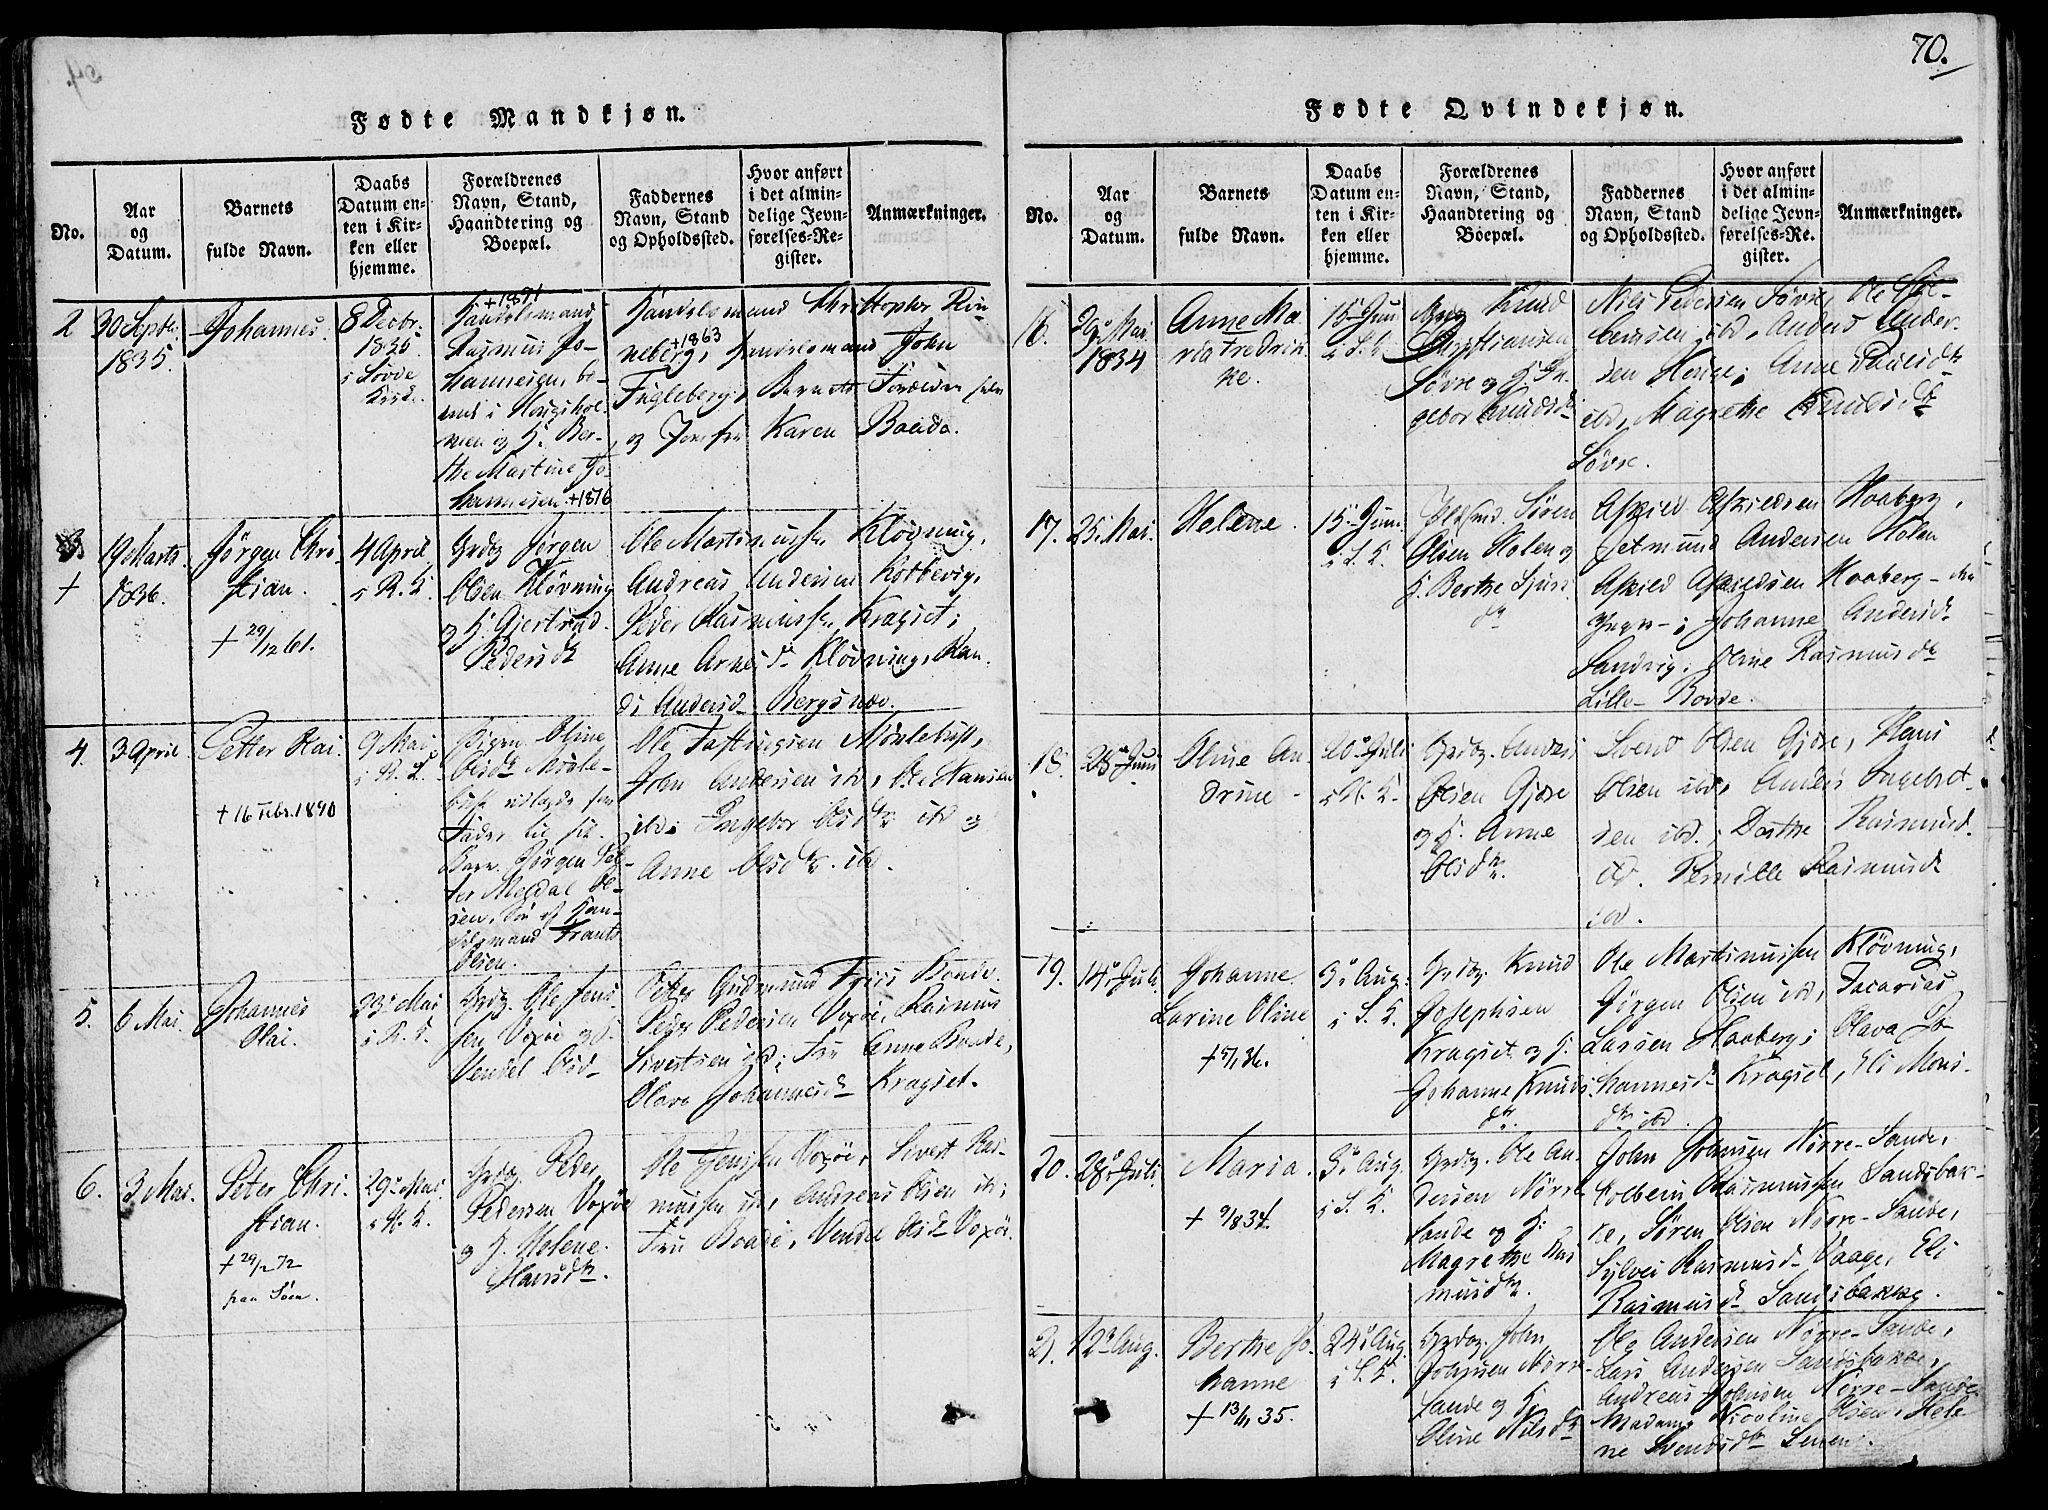 70.
Fødte Mandkjøn.
No.
Aar
og
Datum.
Barnets
fulde Navn.
Daabs
Datum en-
ten i Kir-
ken eller
hjemme.
Forældrenes
Navn, Stand,
Haandtering og
Boepæl.
Faddernes
Navn, Stand
og Opholdssted.
Hvor anført
i det almin-
delige Jevn-
førelses-Re-
gister.
Anmærkninger.
2
30 Septbr.
1835.
Johannes.
8 Decbr.
1835
i Sövde
Kirke
+1871
Handelsmand
Rasmus Jo-
hannesen, bo-
ende i Hougshol-
men og H. Ber-
the Martine Jo-
hannesen +1876
Handelsmand Christopher Rön-
neberg, +1863 Handelsmand John
Fugleberg, Barnets Forældre selv
og Jomfru Karen Boude.
3
+
19 Marts
1836.
Jørgen Chri-
stian.
+ 29/12 61.
4 April
i R. K.
Grdbr. Jørgen
Olsen Kløvning
og H. Gjertrud
Pedersdtr
Ole Martinussen Kløvning,
Andreas Andersen Kobbevig,
Peder Rasmussen Kragset;
Anne Arnesdr Kløvning, Ran-
di Andersdr Bergsnæv.
4.
3 April.
Petter Kai.
+ 16 Febr. 1890
9 Mai
i R. K.
Pigen Oline
Olsdtr Myrle-
bust udlagde som
Fader til sit
Barn Jørgen Pet-
ter Megdal Ol-
sen, Søn af Han-
delsmand Frants
Olsen.
Ole Taftingsen Myrlebust,
John Andersen ibd, Ole Hansen
ibd; Ingebor Olsdtr ibd og
Anne Olsdtr. ibd.
5.
6 Mai.
Johannes
Olai.
23. Mai
i R. K.
Grdbr. Ole Jens-
sen Voxöe og H.
Vendel Olsd
Petter Gudmund Friis Bonde.
Peder Pedersen Voxöe, Rasmus
Sivertsen ibd; Fru Anne Boude,
Olava Johannesdr Kragset.
6.
3 Mai.
Peter Chri-
stian.
+ 29/2 72
paa Söen.
29. Mai
i R. K.
Grdbr. Peder
Pedersen Voxöe
og H. Helene
Hansdtr.
Ole Jenssen Voxöe, Sivert Ras-
mussen ibd, Andreas Olsen ibd;
Fru Boude, Vendel Olsd Voxöe.
Fødte Qvindekjøn.
No.
Aar
og
Datum.
Barnets
fulde Navn.
Daabs
Datum en-
ten i Kir-
ken eller
hjemme.
Forældrenes
Navn, Stand,
Haandtering og
Boepæl.
Faddernes
Navn, Stand
og Opholdssted.
Hvor anført
i det almin-
delige Jevn-
førelses-Re-
gister.
Anmærkninger.
16.
Mai
1834
Anne Ma-
ria Fredrik-
ke.
15. Juni
i S. K.
Knud
Christiansen
Søvre og H. In-
gebor Knudsdr
Niels Pedersen Søvre, Ole
ibd, Anders Ander-
sen Houge; Anne Paulsdtr
ibd, Magrethe Knudsdtr
Søvre.
17.
25. Mai.
Helene.
15. Juni
i S. K.
Søren
Olsen Holen og
H. Berthe
dr
Askild Askildsen Haaberg,
Jetmund Andersen Holen
Askild Askildsen Haaberg – den
yngre –; Johanne Andersdr
Sandvig; Oline Rasmusdtr
Lille-Bovde.
18.
28. Juni
Oline An-
drine –
20. Juli
i R. K.
Grdbr. Anders
Olsen Gjöse
og H. Anne
Olsdtr.
Svend Olsen Gjöse, Hans
Olsen ibd, Anders Ingebret-
sen ibd; Dorthe Rasmusd.
ibd. Pernille Rasmusdr
ibd.
19.
14. Juli
Johanne
Larine Oline
3. Aug.
i S. K.
Grdbr. Knud
Josephsen
Kragset og H.
Johanne Knuds-
dtr.
Ole Martinussen Kløvning,
Jørgen Olsen ibd, Zacarias
Larsen Haaberg; Olava Jo-
hannesdr Kragset, Eli Mons-
dtr ibd.
20.
28. Juli
Maria.
+ 9/8 34.
3. Aug.
i S. K.
Grdbr. Ole An-
dersen Nörre-
Sande og H.
Magrethe Ras-
musdtr.
John Johnsen Nörre-Sande,
Colbein Rasmussen Sandsbak-
ke, Søren Olsen Nörre-Sande,
Sylvei Rasmusd– Vaage, Eli
Rasmusdr Sandsbakke.
21.
12. Aug.
Berthe Jo-
hanne
24. Aug.
i S. K.
Grdbr. John
Johnsen Nörre-
Sande og H.
Oline Nilsdtr
Ole Andersen Nörre-Sande,
Lars Andersen Sandsbakke,
Andreas Johnsen Nörre-Sande,
Madame Nicoline Olsen, Hele-
ne Svendsdtr